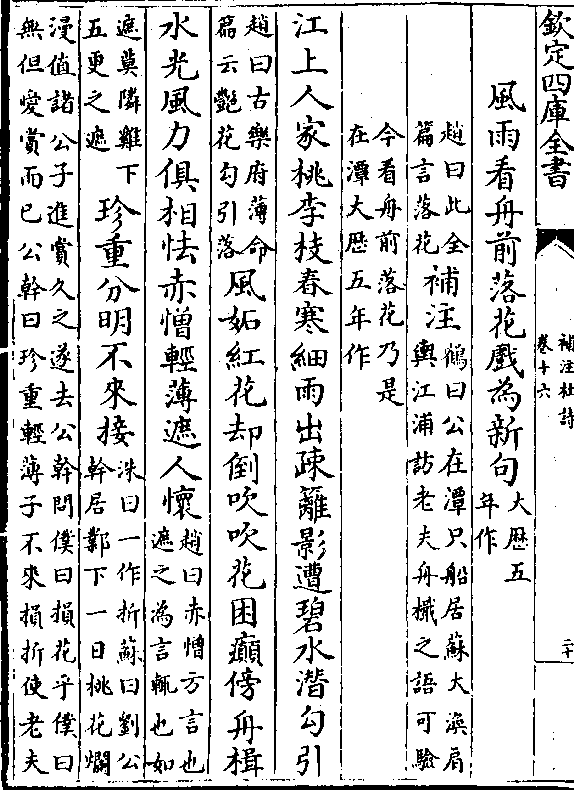 欽定四庫全書
補注杜詩
卷十六
二十
風雨看舟前落花戲為新句
大歴五
年作
趙曰此全
篇言落花
補注
鶴曰公在潭只船居蘇大渙肩
輿江浦訪老夫舟檝之語可驗
今看舟前落花乃是
在潭大歴五年作
江上人家桃李枝春寒細雨出疎籬影遭碧水潛勾引
趙曰古樂府薄命
篇云艶花勾引落
風妬紅花却倒吹吹花困癲傍舟楫
水光風力俱相怯赤憎輕薄遮人懷
趙曰赤憎方言也
遮之為言輒也如
遮莫隣雞下
五更之遮
珍重分明不來接
洙曰一作折蘇曰劉公
幹居鄴下一日桃花爛
漫值諸公子進賞久之遂去公幹問僕曰損花乎僕曰
無但愛賞而已公幹曰珍重輕薄子不來損折使老夫